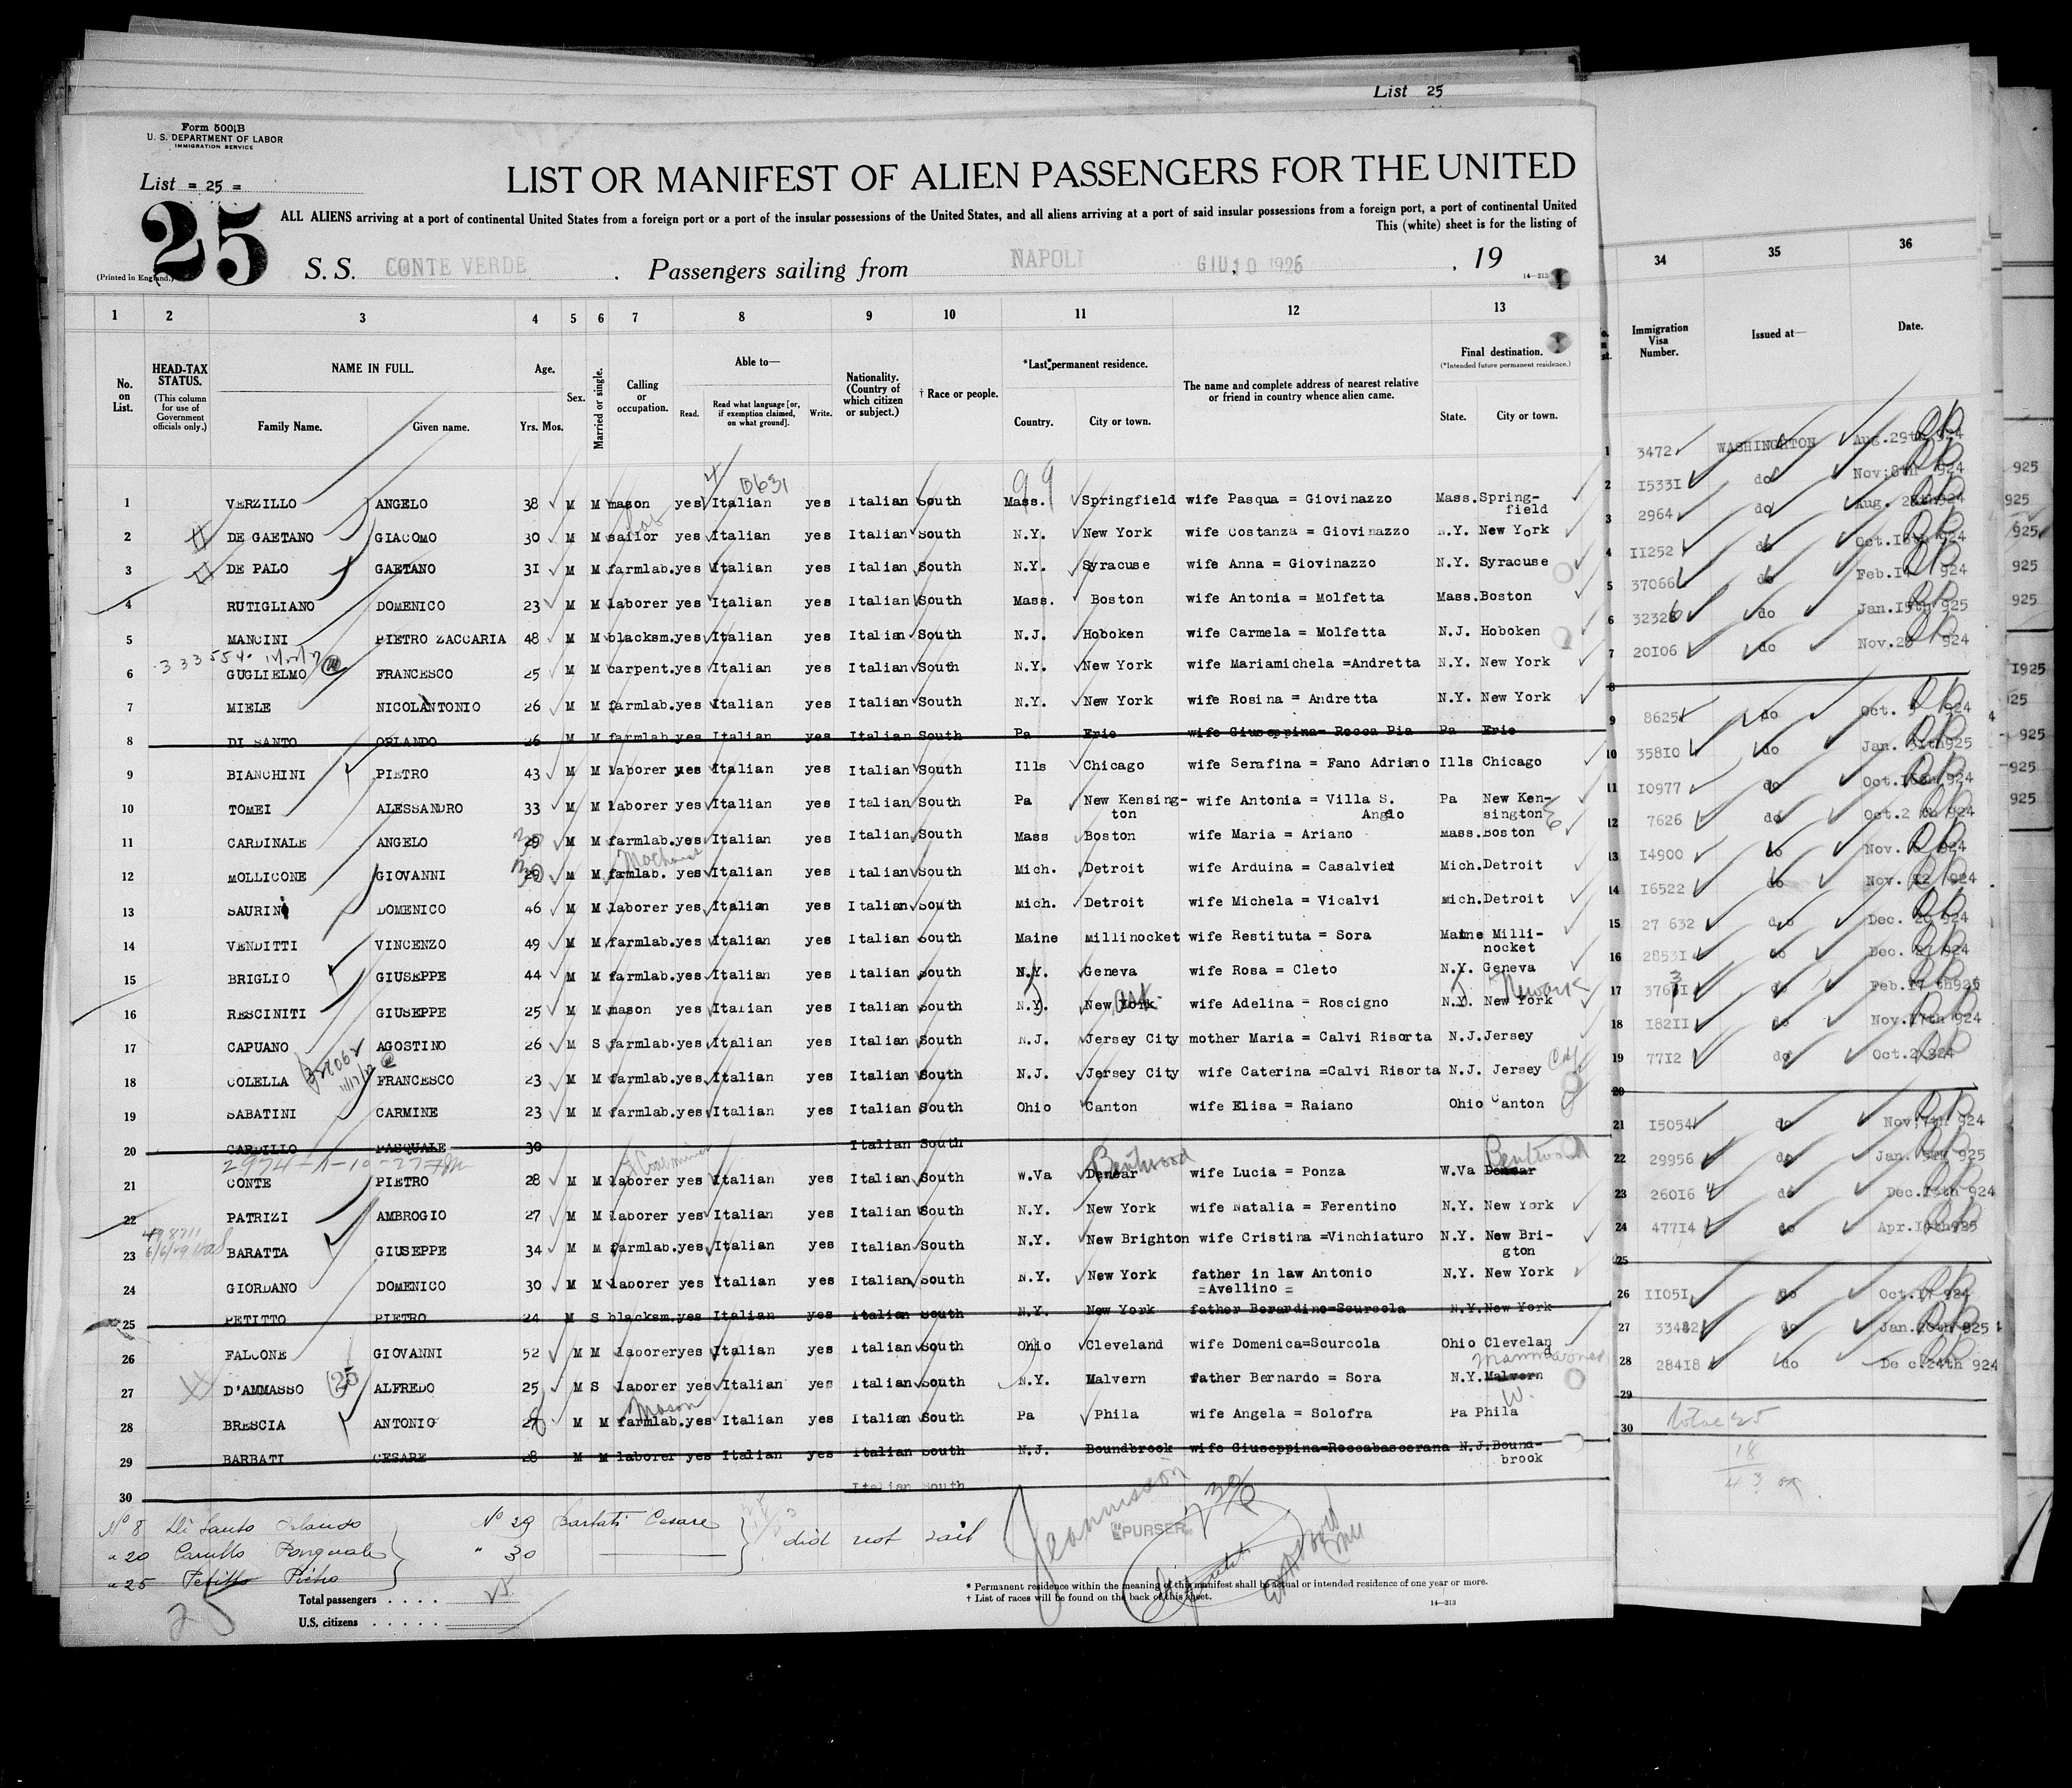 List 25
Form 500 B
U. S. DEPARTMENT OF LABOR
IMMIGRATION SERVICE
List = 25 =
25
LIST OR MANIFEST OF ALIEN PASSENGERS FOR THE UNITED
ALL ALIENS arriving at a port of continental United States from a foreign port or a port of the insular possessions of the United States, and all aliens arriving at a port of said insular possessions from a foreign port, a port of continental United
This (white) sheet is for the listing of
(Printed in England.)
S. S. CONTE VERDE. Passengers sailing from NAPOLI GIU 10 1925, 19
14—213
1 2 3 4 5 6 7 8 9 10 11 12 13
34 35 36
No. on List.
HEAD-TAX STATUS.
(This column for use of Government officials only.)
NAME IN FULL.
Family Name. Given name.
Age.
Yrs. Mos.
Sex.
Married or single.
Calling or occupation.
Able to—
Read. Read what language [or, if exemption claimed, on what ground]. Write.
Nationality. (Country of which citizen or subject.)
† Race or people.
*Last permanent residence.
Country. City or town.
The name and complete address of nearest relative or friend in country whence alien came.
Final destination.
(*Intended future permanent residence.)
State. City or town.
Immigration Visa Number.
Issued at—
Date.
1 VERZILLO ANGELO 38 M M mason yes Italian yes Italian South Mass. Springfield wife Pasqua = Giovinazzo Mass. Spring-
field
2 DE GAETANO GIACOMO 30 M M sailor yes Italian yes Italian South N.Y. New York wife Costanza = Giovinazzo N.Y. New York
3 DE PALO GAETANO 31 M M farmlab. yes Italian yes Italian South N.Y. Syracuse wife Anna = Giovinazzo N.Y. Syracuse
4 RUTIGLIANO DOMENICO 23 M M laborer yes Italian yes Italian South Mass. Boston wife Antonia = Molfetta Mass. Boston
5 MANCINI PIETRO ZACCARIA 48 M M blacksm. yes Italian yes Italian South N.J. Hoboken wife Carmela = Molfetta N.J. Hoboken
6 GUGLIELMO FRANCESCO 25 M M carpent. yes Italian yes Italian South N.Y. New York wife Mariamichela =Andretta N.Y. New York
7 MIELE NICOLANTONIO 26 M M farmlab. yes Italian yes Italian South N.Y. New York wife Rosina = Andretta N.Y. New York
8 DI SANTO ORLANDO 26 M M farmlab yes Italian yes Italian South Pa Erie wife Giuseppina= Rocca Pia Pa Erie
9 BIANCHINI PIETRO 43 M M laborer yes Italian yes Italian South Ills Chicago wife Serafina = Fano Adriano Ills Chicago
10 TOMEI ALESSANDRO 33 M M laborer yes Italian yes Italian South Pa New Kensing- wife Antonia = Villa S. Pa New Ken-
ton Anglo sington
11 CARDINALE ANGELO 29 M M farmlab. yes Italian yes Italian South Mass Boston wife Maria = Ariano Mass. Boston
Machinist
12 MOLLICONE GIOVANNI M M farmlab. yes Italian yes Italian South Mich. Detroit wife Arduina = Casalvieri Mich. Detroit
13 SAURINI DOMENICO 46 M M laborer yes Italian yes Italian South Mich. Detroit wife Michela = Vicalvi Mich. Detroit
14 VENDITTI VINCENZO 49 M M farmlab. yes Italian yes Italian South Maine Millinocket wife Restituta = Sora Maine Milli-
nocket
15 BRIGLIO GIUSEPPE 44 M M farmlab. yes Italian yes Italian South N.Y. Geneva wife Rosa = Cleto N.Y. Geneva
Newark
16 RESCINITI GIUSEPPE 25 M M mason yes Italian yes Italian South N.Y. New York wife Adelina = Roscigno N.Y. New York
17 CAPUANO AGOSTINO 26 M S farmlab. yes Italian yes Italian South N.J. Jersey City mother Maria = Calvi Risorta N.J. Jersey
18 COLELLA FRANCESCO 23 M M farmlab. yes Italian yes Italian South N.J. Jersey City wife Caterina =Calvi Risorta N.J. Jersey
19 SABATINI CARMINE 23 M M farmlab. yes Italian yes Italian South Ohio Canton wife Elisa = Raiano Ohio Canton
20 CARDILLO PASQUALE 30 Italian South
Coal miner Bentwood Bentwood
21 CONTE PIETRO 28 M M laborer yes Italian yes Italian South W.Va Denear wife Lucia = Ponza W.Va Denear
22 PATRIZI AMBROGIO 27 M M laborer yes Italian yes Italian South N.Y. New York wife Natalia = Ferentino N.Y. New York
23 BARATTA GIUSEPPE 34 M M farmlab. yes Italian yes Italian South N.Y. New Brighton wife Cristina =Vinchiaturo N.Y. New Bri-
gton
24 GIORDANO DOMENICO 30 M M laborer yes Italian yes Italian South N.Y. New York father in law Antonio N.Y. New York
=Avellino =
25 PETITTO PIETRO 24 M S blacksm. yes Italian yes Italian South N.Y. New York father Berardino=Scurcola N.Y. New York
26 FALCONE GIOVANNI 52 M M laborer yes Italian yes Italian South Ohio Cleveland wife Domenica=Scurcola Ohio Clevelan
d
27 D'AMMASSO ALFREDO 25 M S laborer yes Italian yes Italian South N.Y. Malvern father Bernardo = Sora N.Y. Malvern
Mason
28 BRESCIA ANTONIO M M farmlab. yes Italian yes Italian South Pa Phila wife Angela = Solofra Pa Phila
29 BARBATI CESARE 28 M M laborer yes Italian yes Italian South N.J. Boundbrook wife Giuseppina=Roccabascerana N.J. Bound-
brook
30 Italian South
1 3472 WASHINGTON Aug. 29th 924
2 15331 do Nov. 8th 924
3 2964 do Aug. 924
4 11252 do Oct. 924
5 37066 do Feb. 924
6 32328 do Jan. 15th 925
7 20106 do Nov. 20 924
8
9 8625 do Oct. 924
10 35810 do Jan. 31th 925
11 10977 do Oct. 924
12 7626 do Oct. 924
13 14900 do Nov. 924
14 16522 do Nov. 12 924
15 27 632 do Dec. 20 924
16 28531 do Dec. 924
17 do Feb. 17 th
18 18211 do Nov. 17th 924
19 7712 do Oct. 924
20
21 15054 do Nov. 7th 924
22 29956 do Jan. 925
23 26016 do Dec. 924
24 47714 do Apr. 925
25
26 11051 do Oct. 17 924
27 do Jan. 20th 925
28 28418 do De c. 24th 924
29
30 total 25
18
43
No 8 Di Santo Orlando No 29 Barbati Cesare
" 20 Carullo Pasquale " 30 did not sail
" 25 Petitto Pietro
PURSER
Total passengers
25
U.S. citizens
* Permanent residence within the meaning of this manifest shall be actual or intended residence of one year or more.
† List of races will be found on the back of this sheet.
14—213